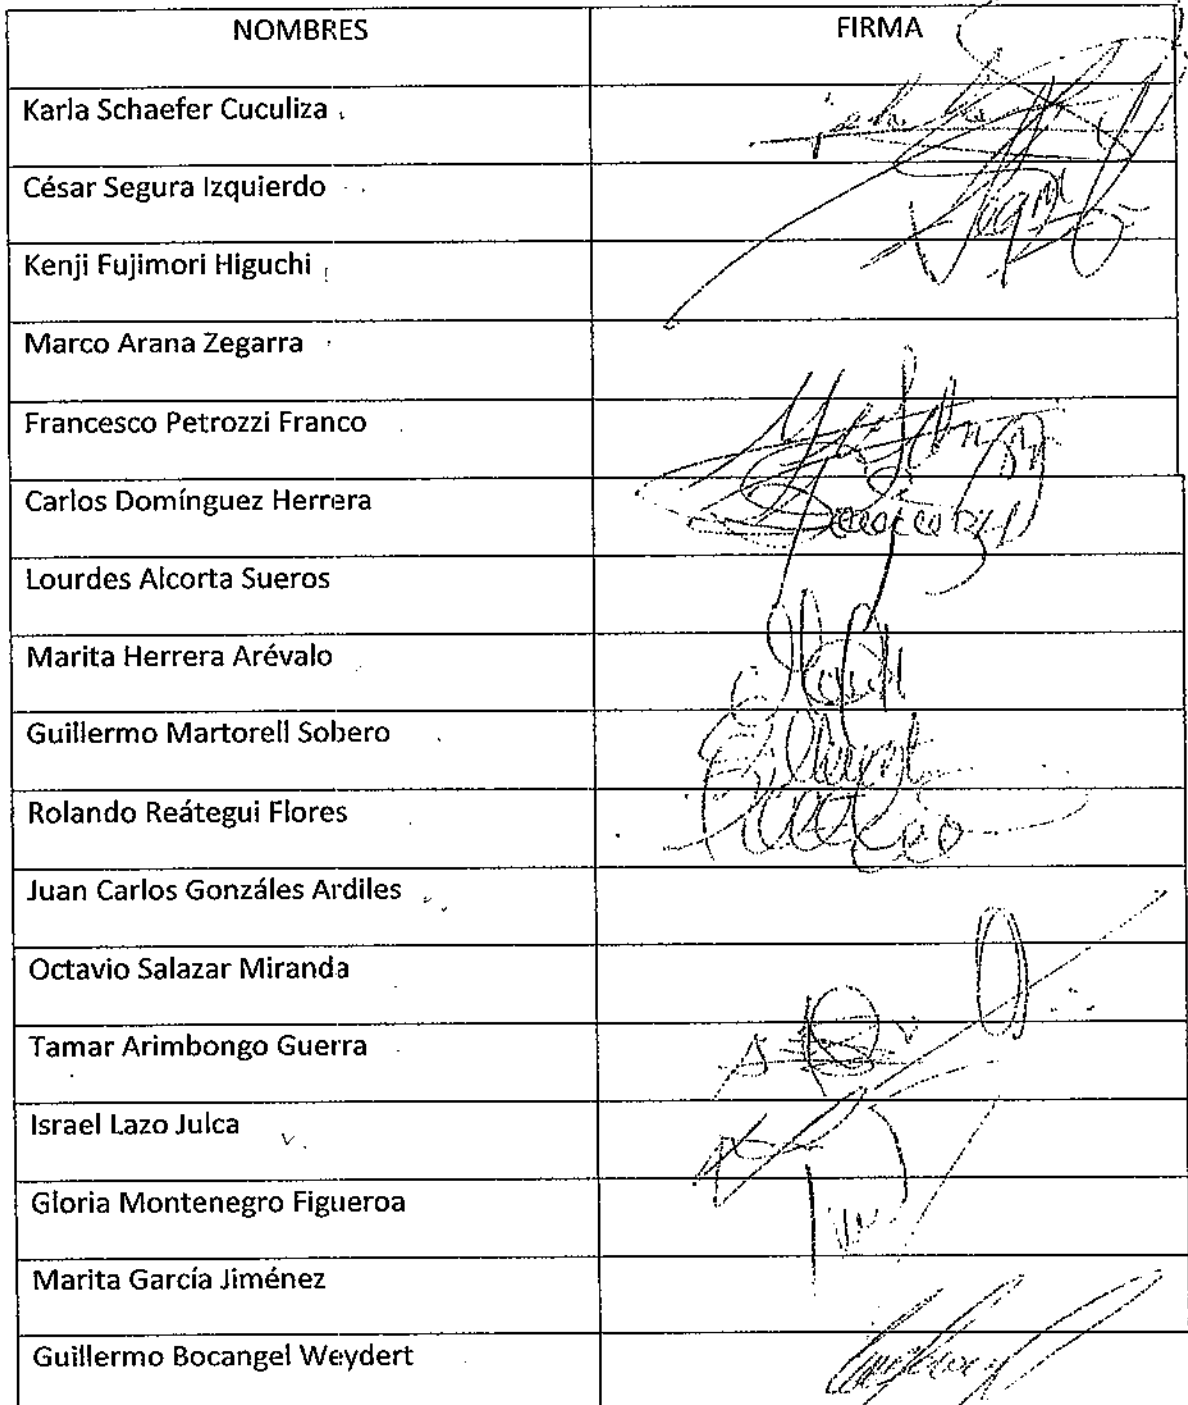 NOMBRES FIRMA
Karla Schaefer Cuculiza
César Segura Izquierdo
Kenji Fujimori Higuchi
Marco Arana Zegarra
Francesco Petrozzi Franco
Carlos Domínguez Herrera
Lourdes Alcorta Sueros
Marita Herrera Arévalo
Guillermo Martorell Sobero
Rolando Reátegui Flores
Juan Carlos Gonzáles Ardiles
Octavio Salazar Miranda
Tamar Arimbongo Guerra
Israel Lazo Julca
Gloria Montenegro Figueroa
Marita García Jiménez
Guillermo Bocangel Weydert